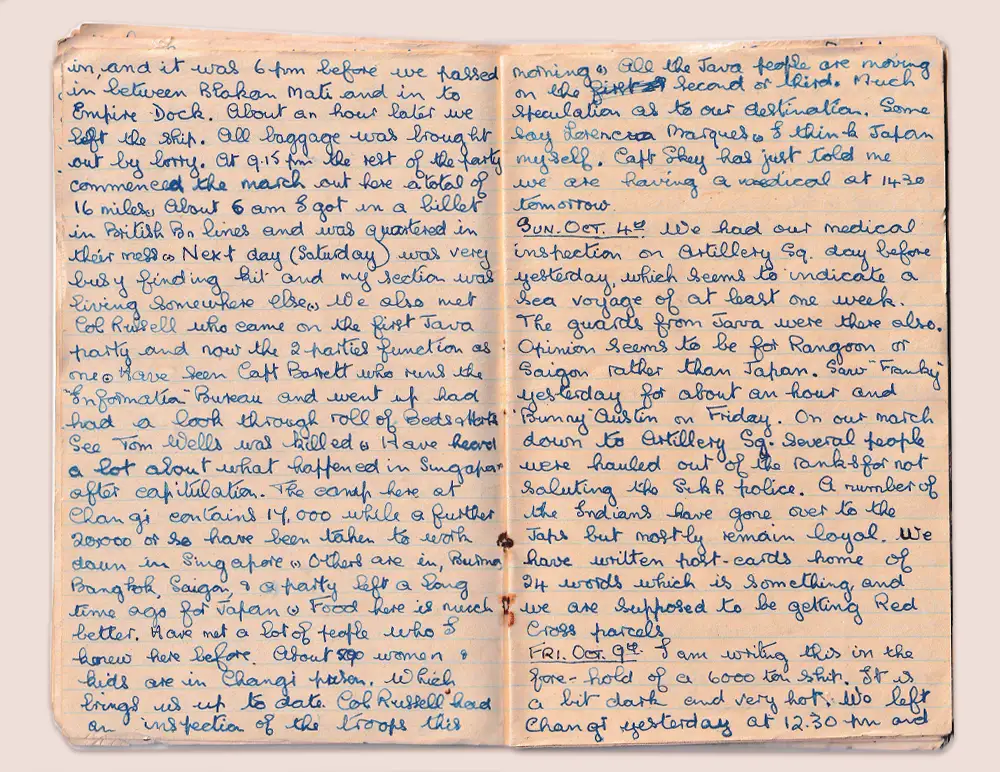 in, and it was 6 pm before we passed
in between Blakan Mati and in to
Empire Dock. About an hour later we
left the ship. All baggage was brought
out by lorry. At 9.15 pm the rest of the party
commenced the march out here a total of
16 miles. About 6 am I got in a billet
in British Bn lines and was quartered in
their mess. Next day (Saturday) was very
busy finding kit and my section was
living somewhere else. We also met
Col Russell who came on the first Java
party and now the 2 parties function as
one. Have seen Capt Barrett who runs the
"Information" Bureau and went up had
had a look through roll of Beds & Herts
See Tom Wells was killed. Have heard
a lot about what happened in Singapore
after capitulation. The camp here at
Changi contains 17,000 while a further
20,000 or so have been taken to work
down in Singapore. Others are in, Burma
Bangkok, Saigon, & a party left a long
time ago for Japan. Food here is much
better. Have met a lot of people who I
knew here before. About women &
kids are in Changi prison. Which
brings us up to date. Col Russell had
an inspection of the troops this
morning. All the Java people are moving
on the first or second or third. Much
speculation as to our destination. Some
say Lorenzo Marques. I think Japan
myself. Capt Skey has just told me
we are having a medical at 1430
tomorrow
SUN. OCT. 4th We had our medical
inspection on Artillery Sq. day before
yesterday, which seems to indicate a
sea voyage of at least one week.
The guards from Java were there also.
Opinion seems to be for Rangoon or
Saigon rather than Japan. Saw "Franky"
yesterday for about an hour and
"Bunny" Austin on Friday. On our march
down to Artillery Sq. several people
were hauled out of the ranks for not
saluting the Sikh police. A number of
the Indians have gone over to the
Japs but mostly remain loyal. We
have written post-cards home of
24 words which is something and
we are supposed to be getting Red
Cross parcels
FRI. OCT. 9th. I am writing this in the
fore-hold of a 6000 ton ship. It is
a bit dark and very hot. We left
Changi yesterday at 12.30 pm and